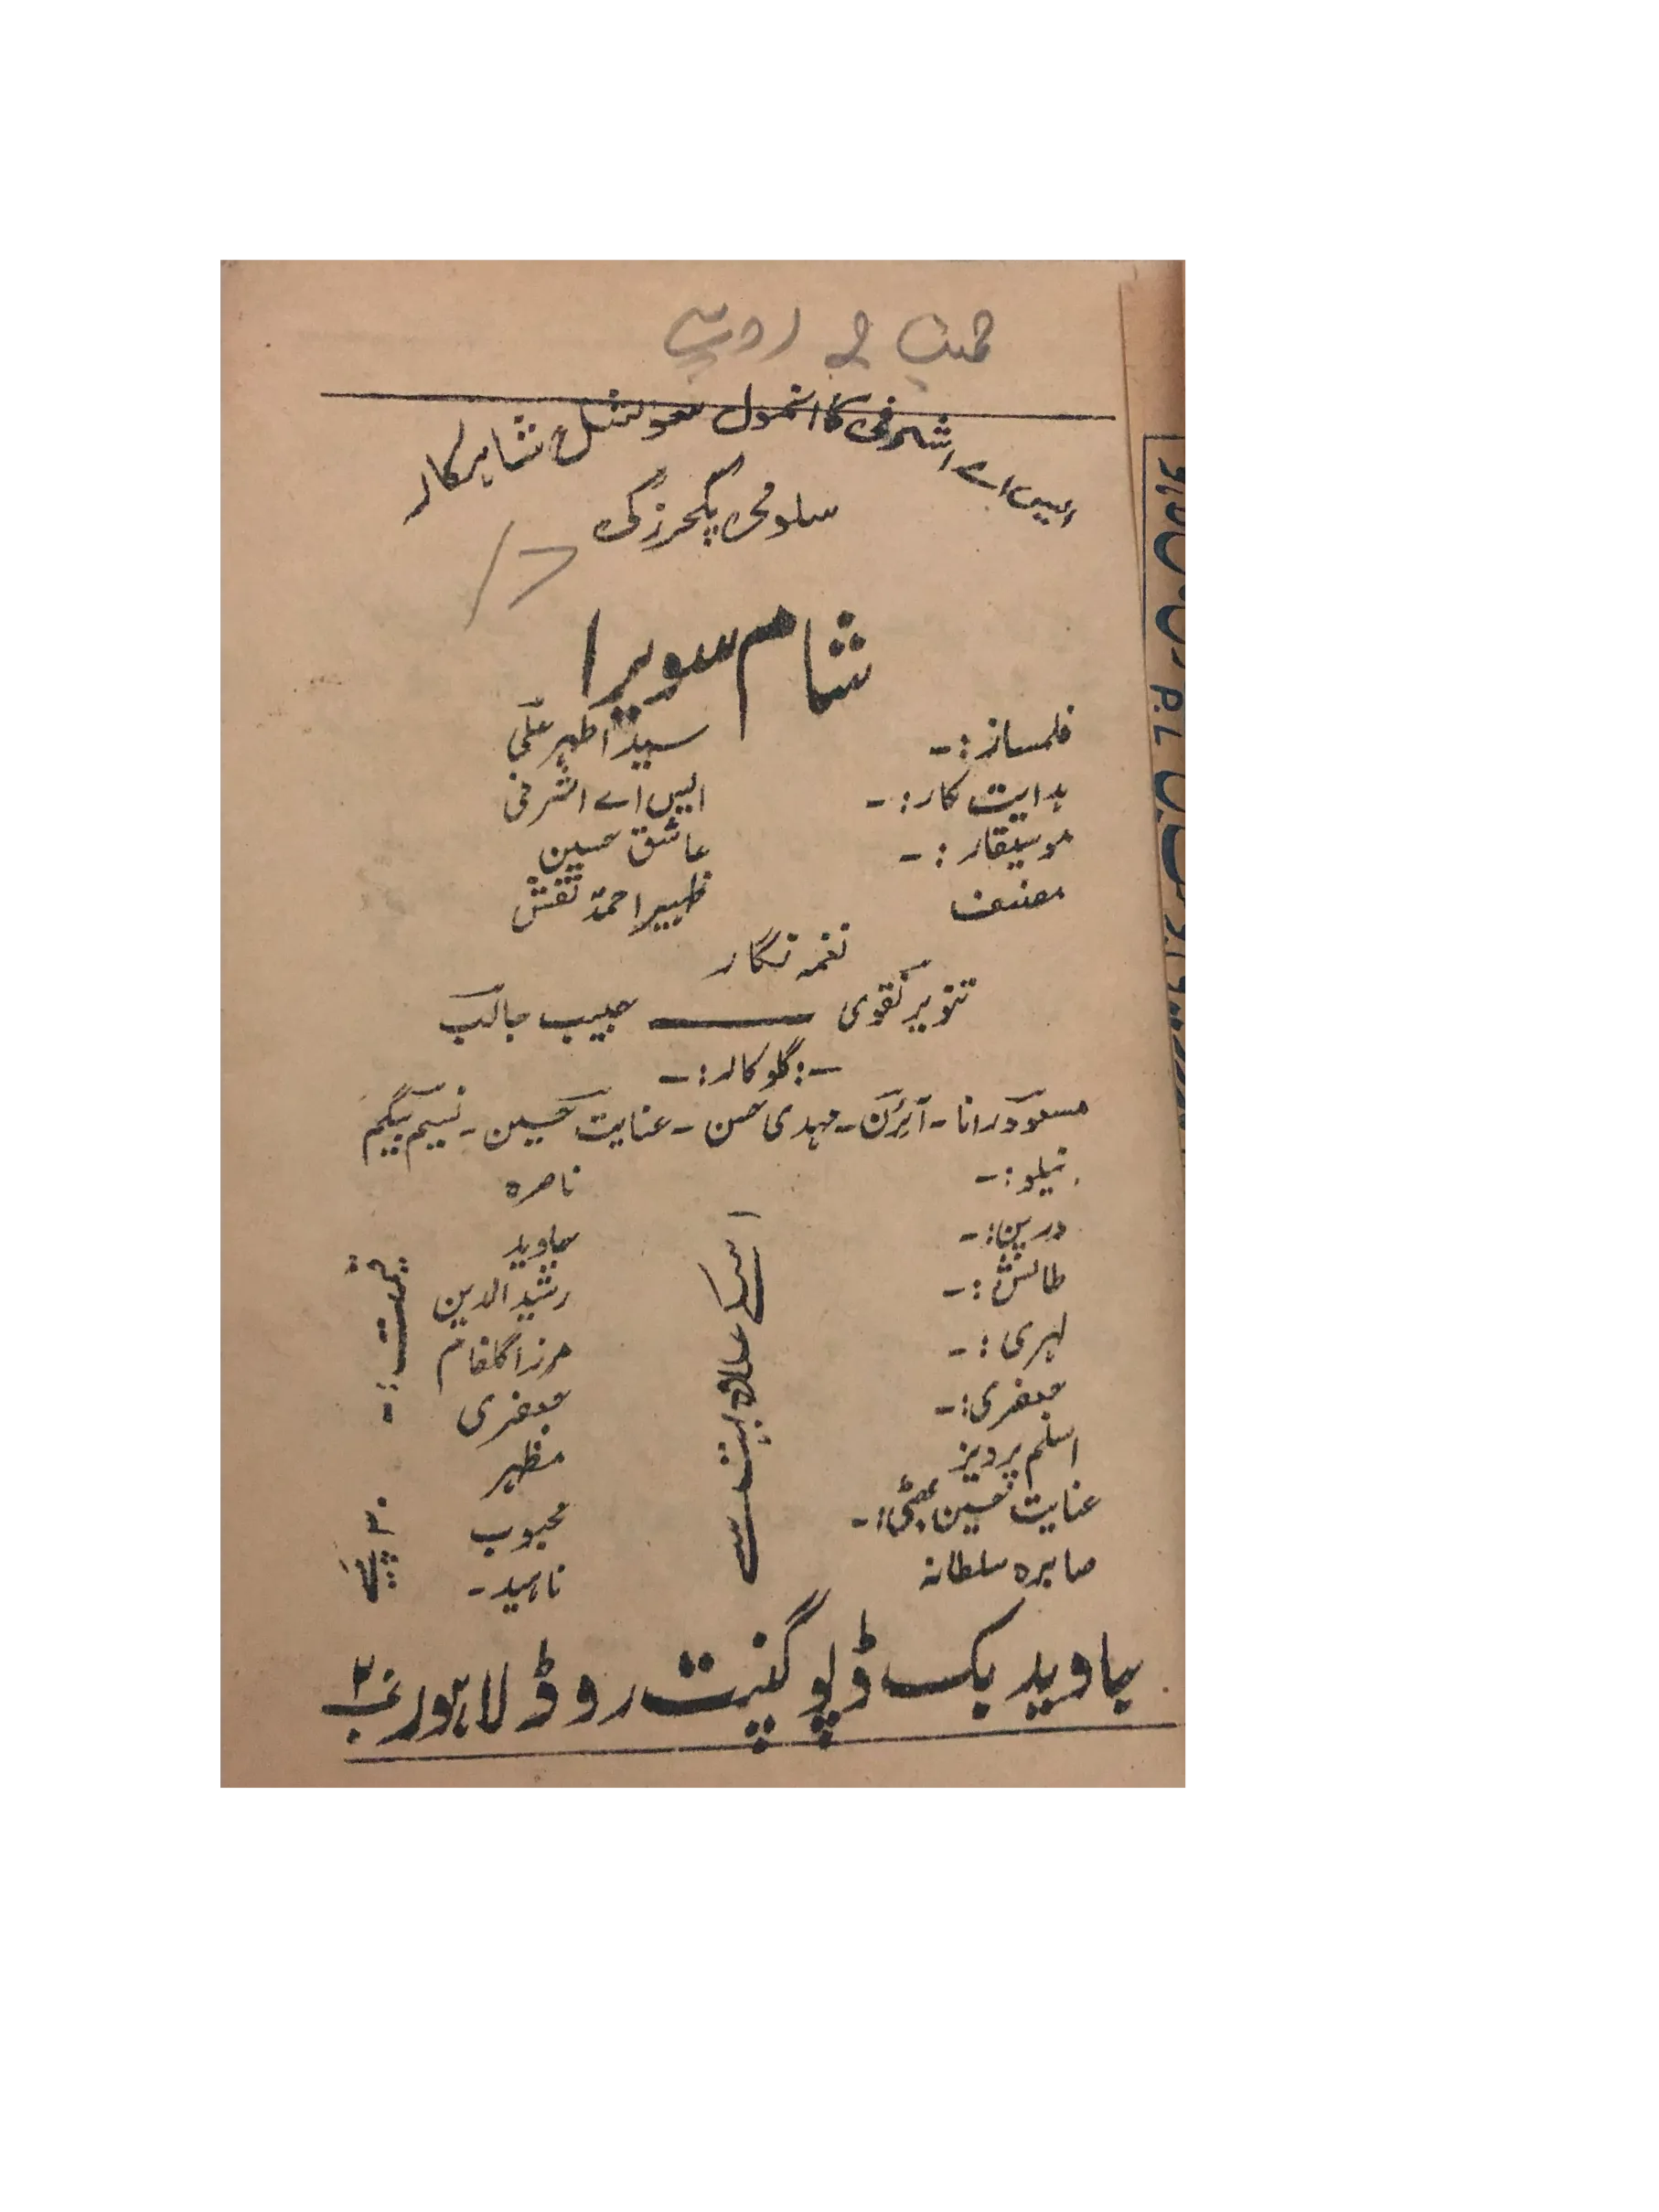 قیمت 2 روپے
ایس اے اشرفی کا انمول سوشل شاہکار
سلومی پکچرز کی
شام سویرا
فلمساز :- سید اطہر علی
ہدایت کار :- ایس اے اشرفی
موسیقار :- عاشق حسین
مصنف ظہیر احمد نقش
نغمہ نگار
تنویر نقوی ـــــ حبیب جالب
-: گلوکار :-
مسعود رانا - آئرن - مہدی حسن - عنایت حسین - نسیم بیگم
نیلو :- ناصرہ
درپن :- جاوید
طالش :- رشید الدین
لہری :- مرزا گلفام
جعفری :- جعفری
اسلم پرویز مظہر
عنایت حسین بھٹی :- محبوب
صابرہ سلطانہ ناہید -
اسکے علاوہ بہت سے
قیمت :-
۲۰ پیسے
جاوید بک ڈپو گنپت روڈ لاہور نمبر ۲